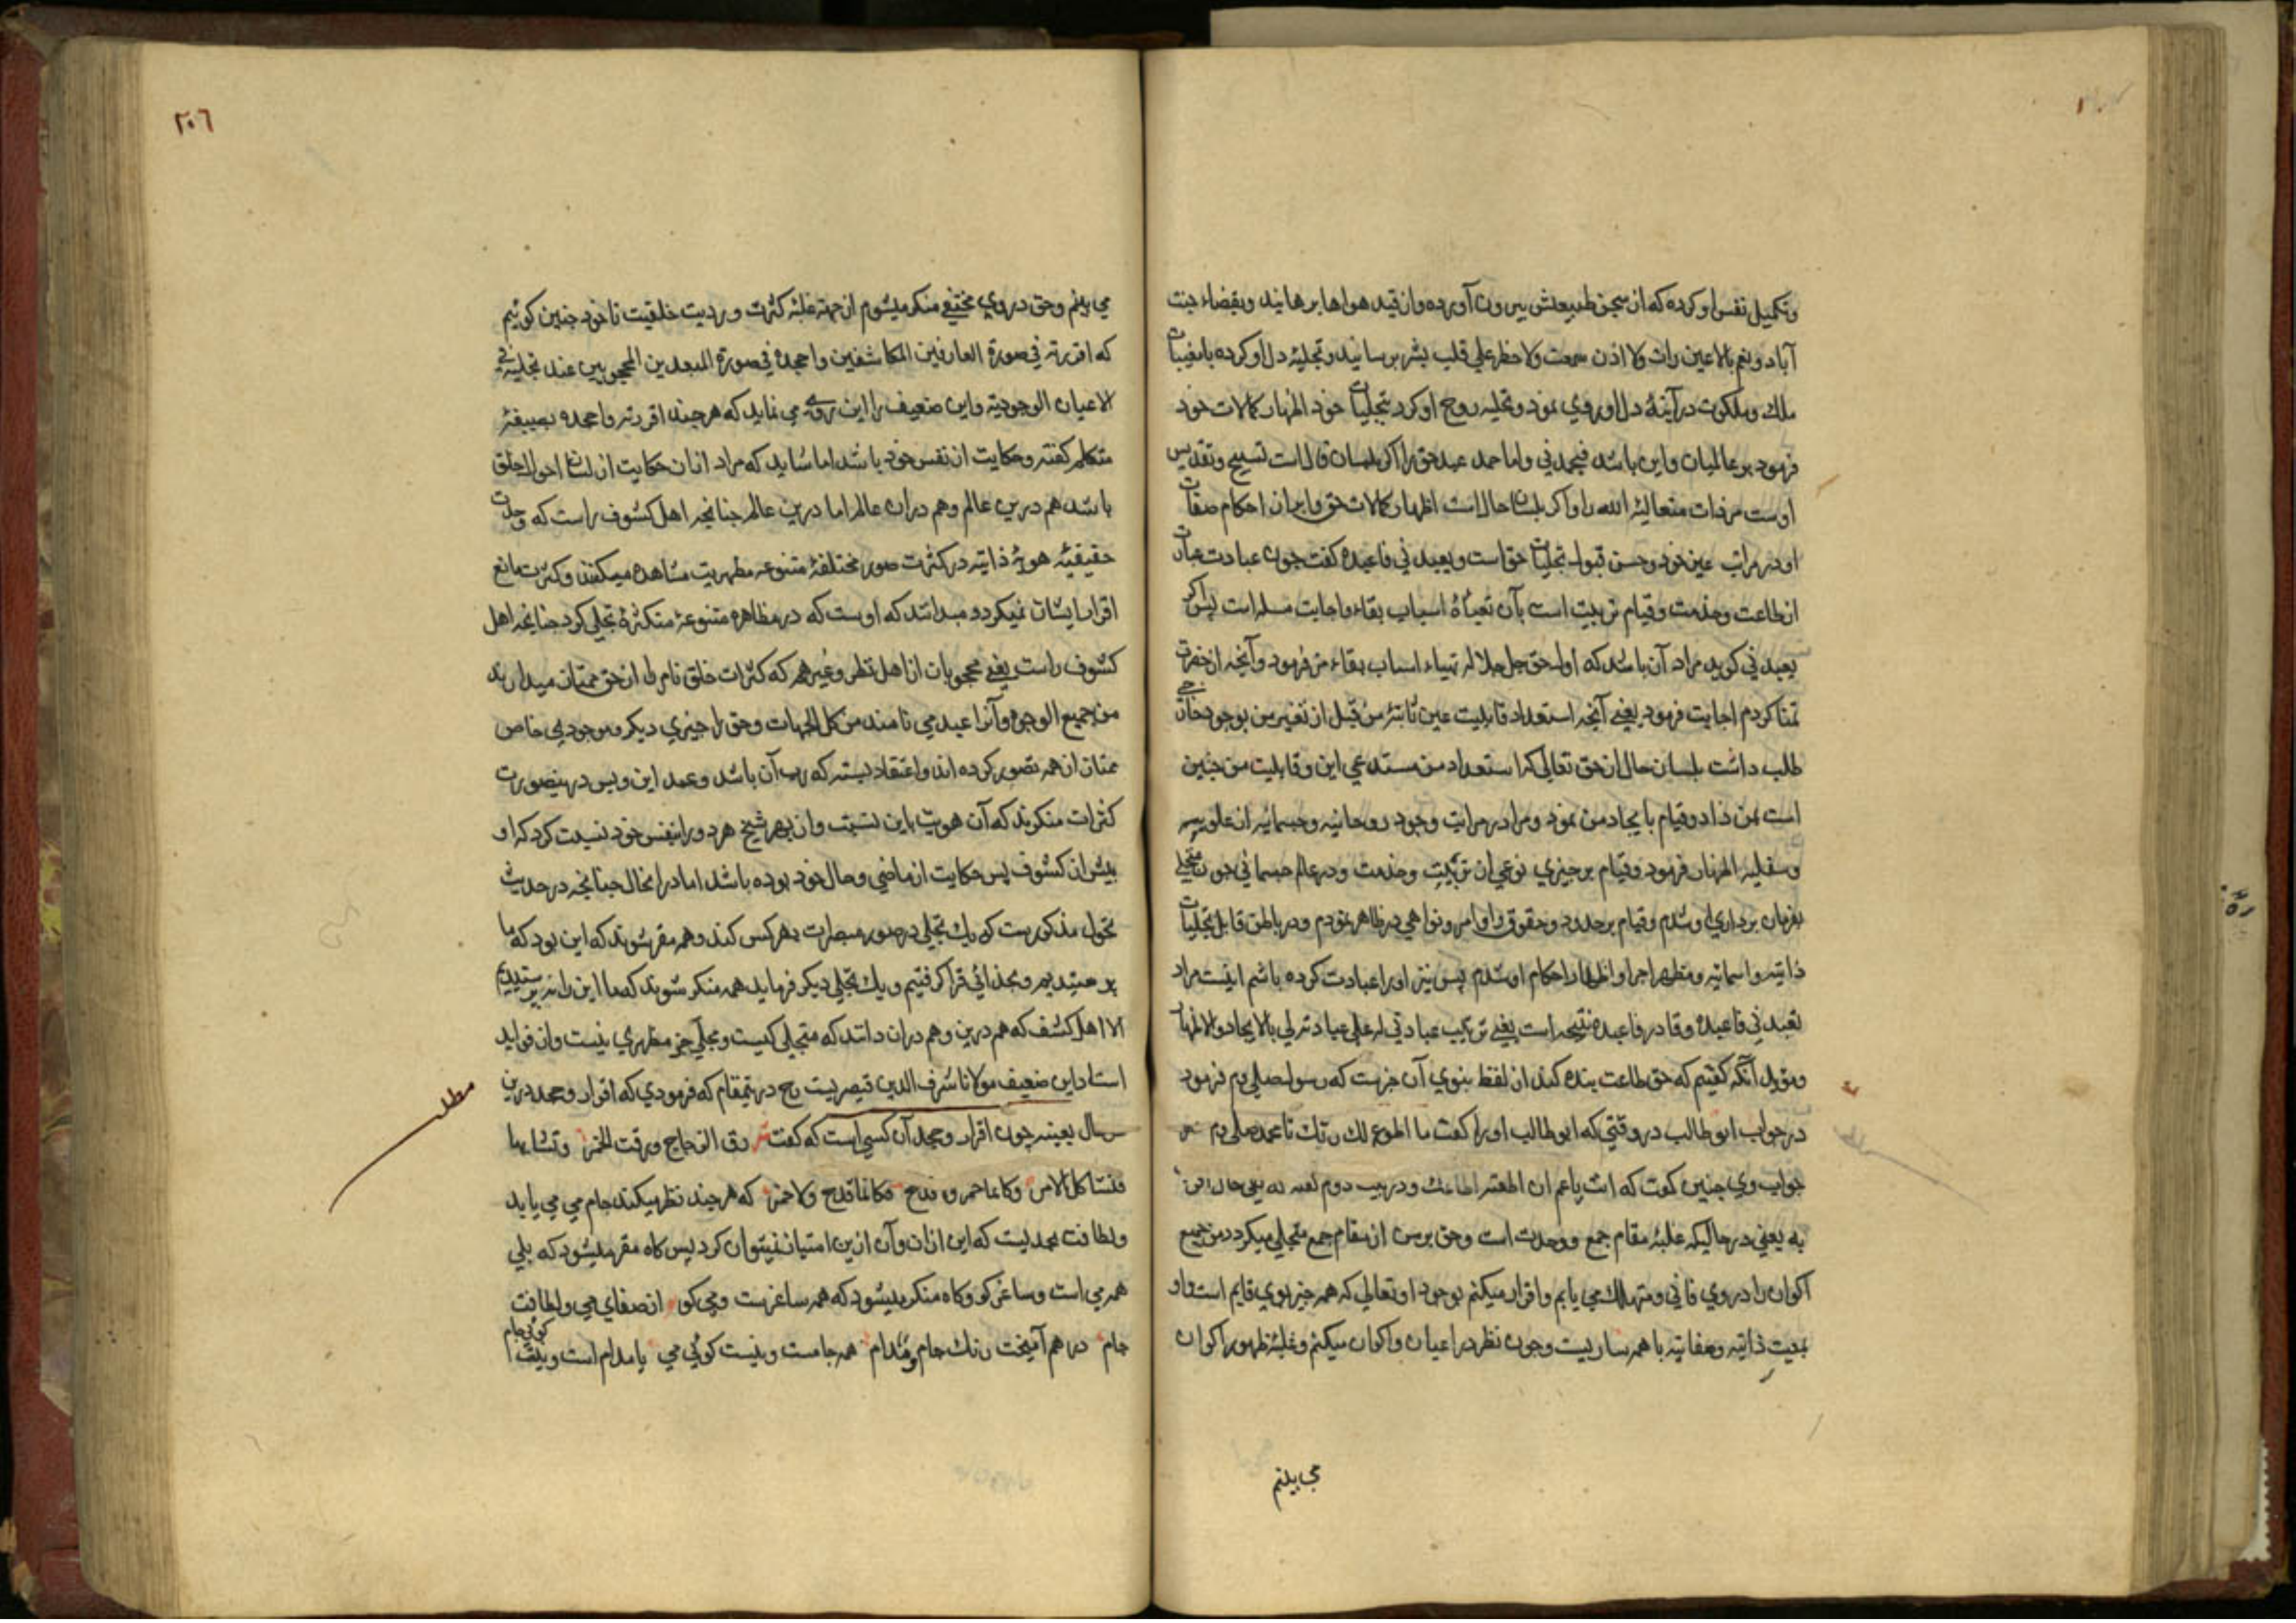 وتکمیل نفس او کرده که از سجن طبیعتش بیرون آورده واز قید هواها برهانید وبفضاء جنت
آباد ونعم بالاعین رات ولا اذن سمعت ولا خطر علی قلب بشر برسانید وتجلیهٔ دل او کرده بامغیبات
ملک وملکوت در آینهٔ دل او روی نمود وتحلیه روح او کرد بتجلیات خود اظهار کمالات خود
فرمود بر عالمیان واین باشد فیحمدنی واما حمد عبد حق را اکر بلسان قال است تسبیح وتقدیس
اوست مر ذات متعالیهٔ الله را واکر بلسان حال است اظهار کمالات حق وابراز احکام صفات
او در مراتب عین خود وحسن قبول تجلیات حق است ویعبدنی فاعبده کفت چون عبادت عبارت
از طاعت وخدمت وقیام تربیت است بآن تعبأهٔ اسباب بقاء واجابت مسله است پس اکر
یعبدنی کوید مراد آن باشد که اول حق جل جلاله تهیاء اسباب بقاء من فرمود وآنچه از حضرت
تمنا کردم اجابت فرمود یعنی آنچه استعداد قابلیت عین ثابتهٔ من قبل از تعین من بوجود خارجی
طلب داشت بلسان حال از حق تعالی که استعداد من مستدعی این وقابلیت من چنین
است بمن داد وقیام بایجاد من نمود ومرا در مراتب وجود روحانیه وجسمانیه از علویه
وسفلیه اظهار فرمود وقیام بر چیزی نوعی از تربیت وخدمت ودر عالم جسمانی چون متجلی
بفرمان برداری او شدم وقیام بر حدود وحقوق واوامر ونواهی در ظاهر نمودم ودر باطن قابل تجلیات
ذاتیه واسمائیه ومظهر اجرا واظهار احکام او شدم پس نیز او را عبادت کرده باشم اینست مراد
یعبدنی فاعبده وفا در فاعبده نتیجه است یعنی ترتیب عبادتی له علی عبادته لی بالایجاد والاظهار
ومؤید آنکه کفتیم که حق طاعت بنده کند از لفظ نبوی آن خبرست که رسول صلی وم فرمود
در جواب ابو طالب در وقتی که ابو طالب او را کفت ما اطوع لک ربک یا محمد صلی وم
جواب وی چنین کفت که انت یا عم ان اطعته اطاعک ودر بیت دوم
به یعنی در حالیکه غلبهٔ مقام جمع ووحدت است وحق بر من از مقام جمع متجلی میکردد من جمیع
اکوان را در وی فانی ومتهالک می یابم واقرار میکنم بوجود او تعالی که همه چیز بوی قایم است واو
بمعیت ذاتیه وصفاتیه با همه ساریست وچون نظر در اعیان واکوان میکنم وغلبهٔ ظهور اکوان
می بینم
٢٠٦
می بینم وحق در وی مختفی منکر میشوم از جهة غلبهٔ کثرت وردیت خلقیت تا خود چنین کوئیم
که اقررته فی صورة العارفین المکاشفین واجحده فی صورة المبعدین المحجوبین عند تجلیه فی
الاعیان الوجودیه واین ضعیف را این روی می نماید که هر چند اقررته واجحده بصیغهٔ
متکلم کفته وحکایت از نفس خود باشد اما شاید که مراد از آن حکایت از لسان احوال خلق
باشد هم درین عالم وهم در ان عالم اما درین عالم چنانچه اهل کشوف راست که وحدت
حقیقیّهٔ هویّهٔ ذاتیه در کثرت صور مختلفهٔ متنوعه مظهریت مشاهده میکنند وکثرت مانع
اقرار ایشان نمیکردد میدانند که اوست که در مظاهره متنوعهٔ متکثرهٔ تجلی کرد چنانچه اهل
کشوف راست یعنی محجوبان از اهل نظر وغیرهم که کثرات خلق نام را از حق ممتاز میدارند
من جمیع الوجوه وآنرا عبد می نامند من کل الجهات وحق را چیزی دیکر وموجودی خاص
ممتاز از همه تصور کرده اند واعتقاد بسته که رب آن باشد وعبد این وبس در ینصورت
کثرات منکرند که آن هویت باین نسبت واز بهر شیخ هر دو را بنفس خود نسبت کرد که او
پیش از کشوف پس حکایت از ماضی وحال خود بوده باشد اما در انحال چنانچه در حدیث
تحول مذکورست که یک تجلی در صور مبصرات بهر کس کند وهمه مقر شوند که این بود که ما
پرستیدیم وبخدائی قرا کرفتیم ویک تجلی دیکر فرماید همه منکر شوند که ما این را نه پرستیدیم
الا اهل کشف که هم درین وهم در ان دانند که متجلی کیست ومجلی جز مظهری نیست واز فواید
استاد این ضعیف مولانا شرف الدین قیصریت رح در ینمقام که فرمودی که اقرار وجحد درین
حال بعینه چون اقرار وجحد آن کسی است که کفت رق الزجاج ورقت الخمر وتشابها
فتشاکل الامر وکانما خمر ولا قدح فکانما قدح ولا خمر که هر چند نظر میکند جام می می یابد
ولطافت بحدیست که این از ان وآن از ین امتیاز نیتوان کرد پس کاه مقر میشود که بلی
همه می است وساغر کو وکاه منکر میشود که همه ساغرست ومی کو از صفای می ولطافت
جام در هم آمیخت رنک جام ومدام همه جامست ونیست کوئی می یا مدام است ونیست کوئی جام
مطلب